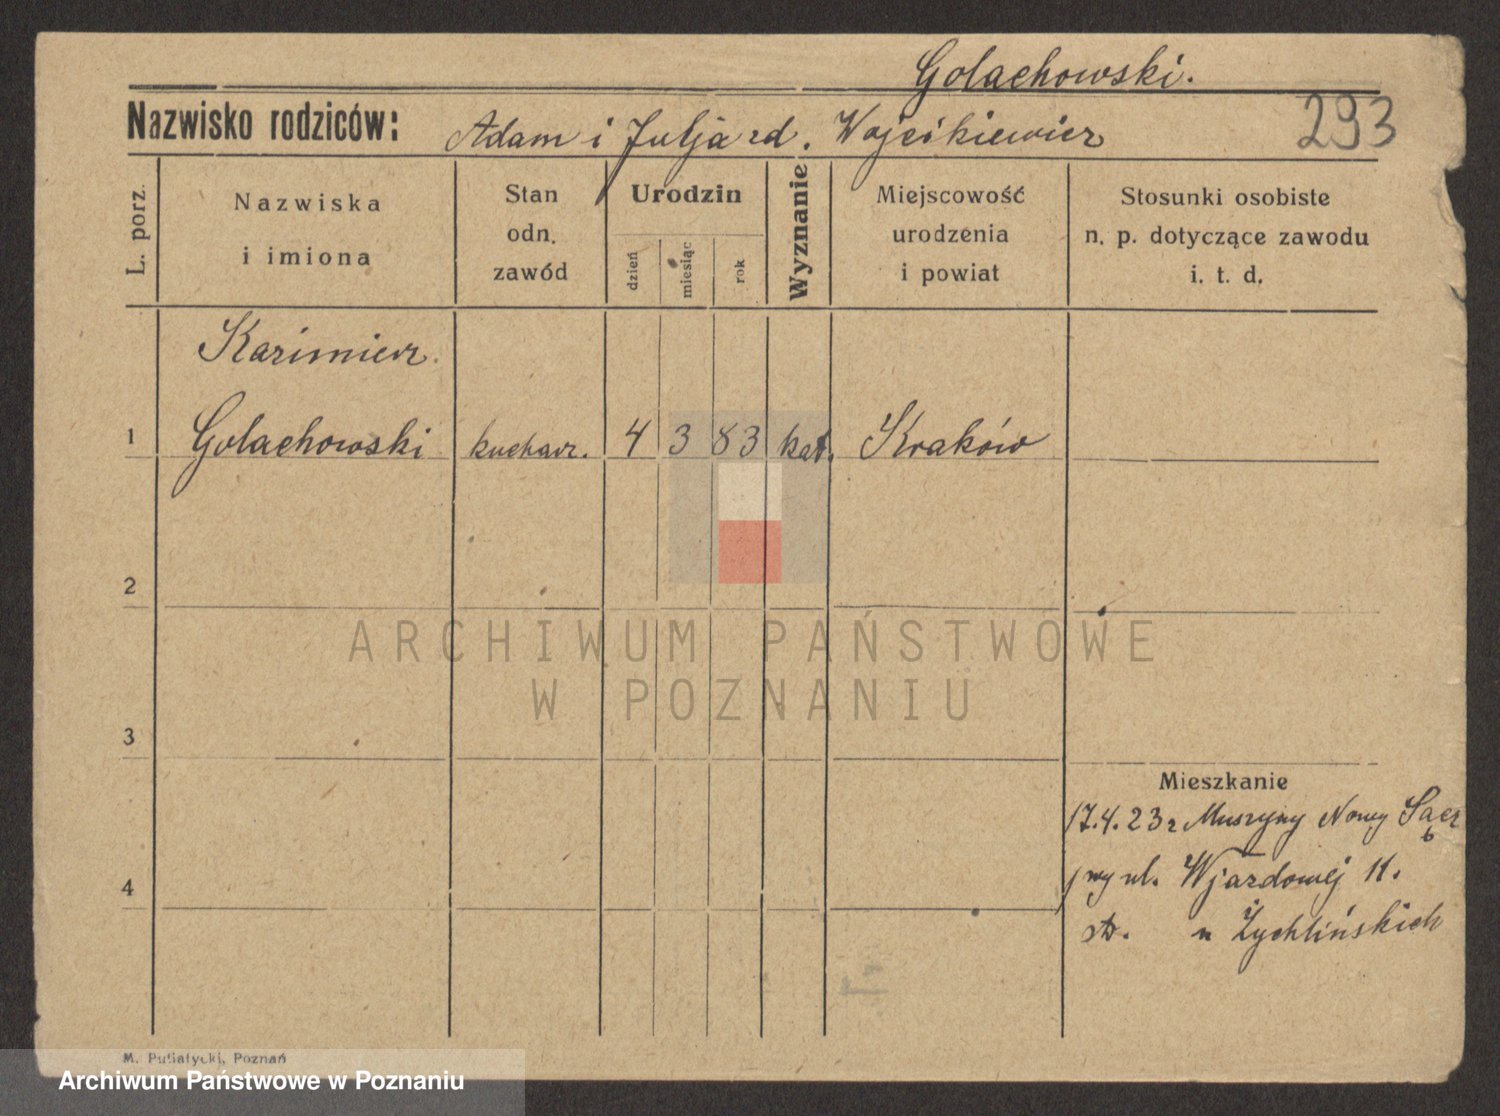 Golachowski.
Nazwisko rodziców: Adam i Julja zd. Wojcikiewicz 293
L. porz.
Nazwiska i imiona
Stan odn. zawód
Urodzin
dzień
miesiąc
rok
Wyznanie
Miejscowość urodzenia i powiat
Stosunki osobiste n. p. dotyczące zawodu i. t. d.
Kazimierz.
1 Golachowski kucharz. 4 3 83 kat. Kraków
2
ARCHIWUM PAŃSTWOWE
W POZNANIU
3
Mieszkanie
17.4.23 z Muszyny Nowy Sącz
4
ul. Wjazdowej 11.
u Żychlińskich
M. Putiatycki, Poznań
Archiwum Państwowe w Poznaniu